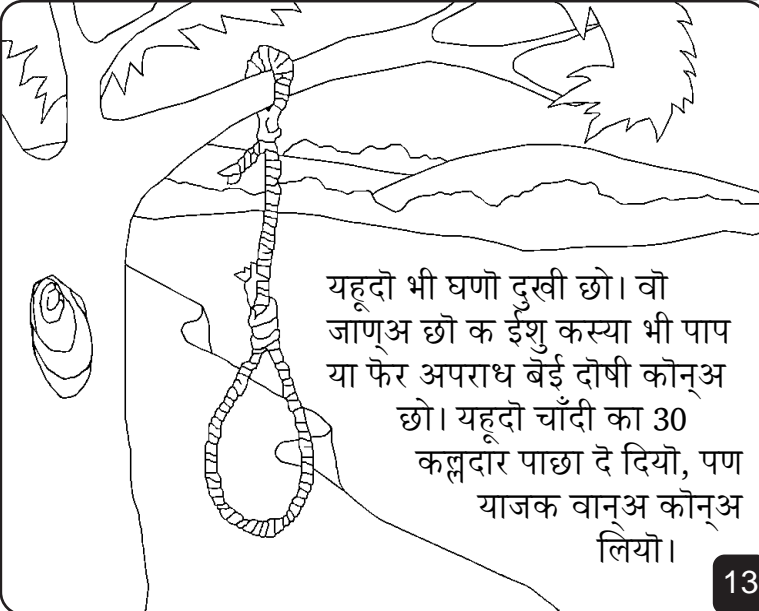 यहूदॊ भी घणॊ दुखी छो। वॊ
जाण्अ छॊ क ईशु कस्या भी पाप
या फॆर अपराध बॆई दॊषी कॊन्अ
छो। यहूदॊ चाँदी का 30
कल्लदार पाछा दॆ दियॊ, पण
याजक वान्अ कॊन्अ
लियॊ।
13